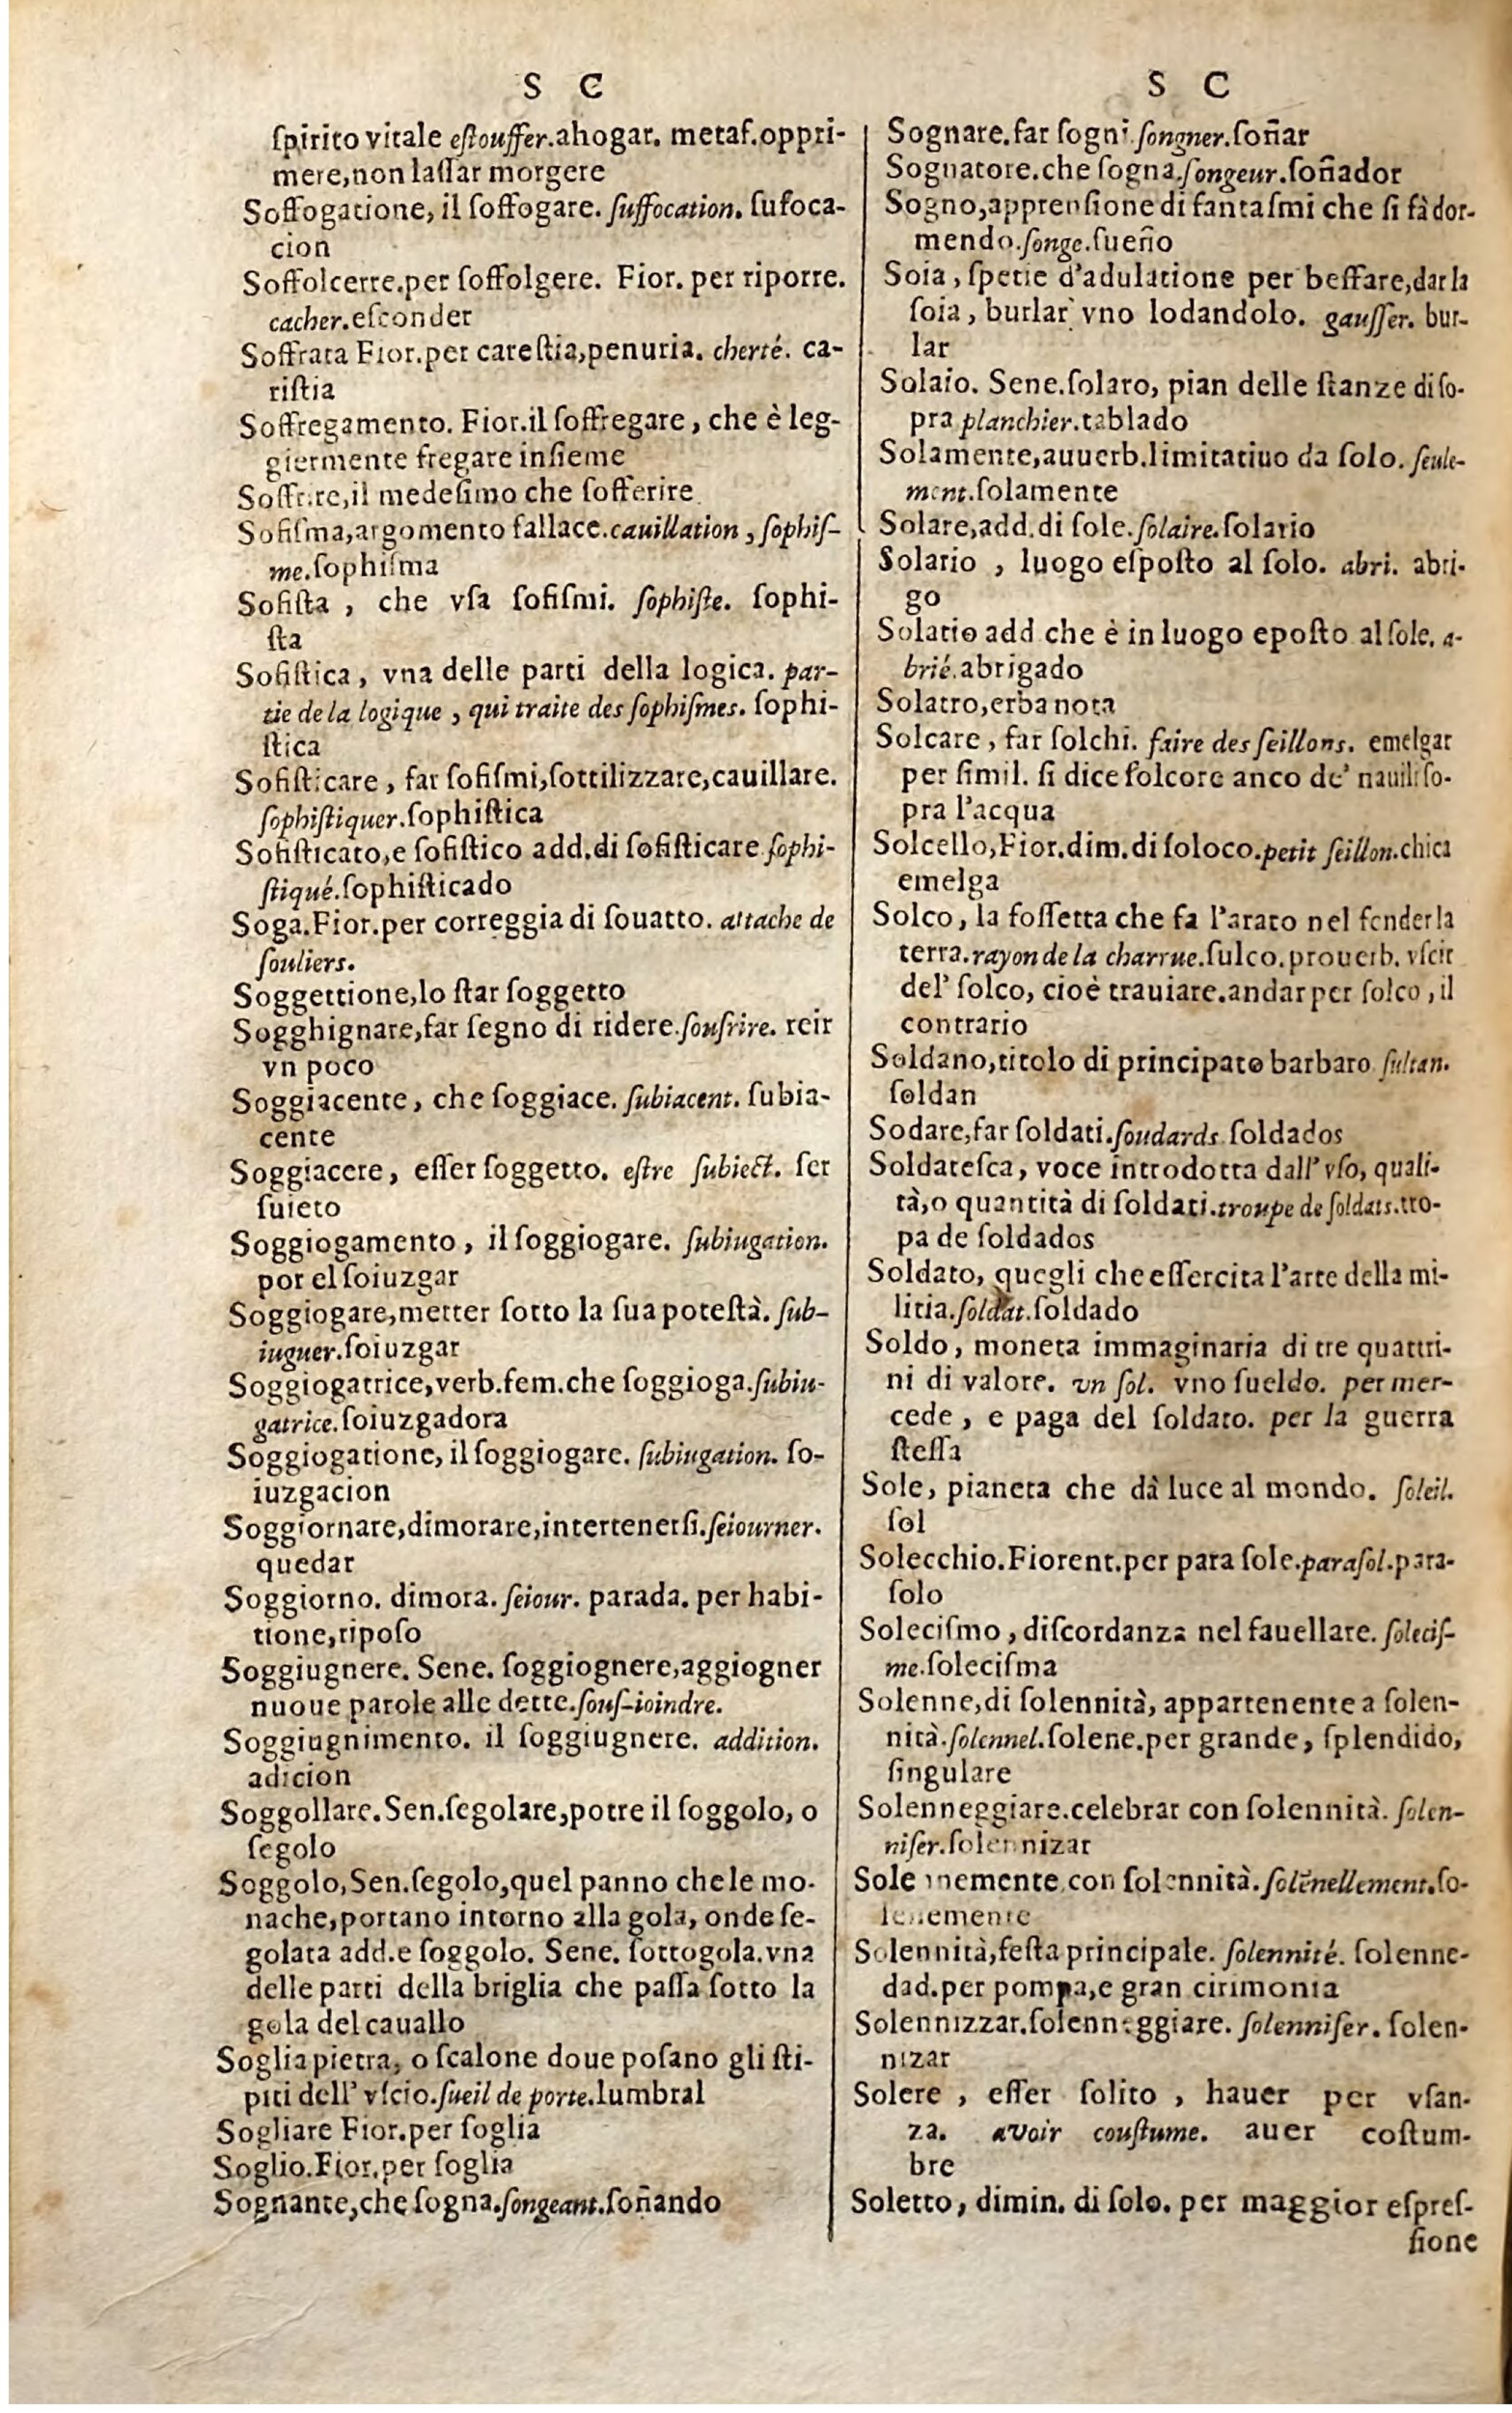 S C
ſpirito vitale eſtouffer.ahogar. metaf.oppri-
mere,non laſſar morgere
Soffogatione, il ſoffogare. ſuffocation. ſufoca-
cion
Soffolcerre.per ſoffolgere. Fior. per riporre.
cacher.eſconder
Soffrata Fior.per careſtia,penuria. cherté. ca-
riſtia
Soffregamento. Fior.il ſoffregare, che è leg-
giermente fregare inſieme
Soffrire,il medeſimo che ſofferire
Sofiſma,argomento fallace.cauillation, ſophiſ-
me.ſophiſma
Sofiſta, che vſa ſofiſmi. ſophiſte. ſophi-
ſta
Sofiſtica, vna delle parti della logica. par-
tie de la logique, qui traite des ſophiſmes. ſophi-
ſtica
Sofiſticare, far ſofiſmi,ſottilizzare,cauillare.
ſophiſtiquer.ſophiſtica
Sofiſticato,e ſofiſtico add.di ſofiſticare ſophi-
ſtiqué.ſophiſticado
Soga.Fior.per correggia di ſouatto. attache de
ſouliers.
Soggettione,lo ſtar ſoggetto
Sogghignare,far ſegno di ridere.ſouſrire. reir
vn poco
Soggiacente, che ſoggiace. ſubiacent. ſubia-
cente
Soggiacere, eſſer ſoggetto. eſtre ſubiect. ſer
ſuieto
Soggiogamento, il ſoggiogare. ſubiugation.
por el ſoiuzgar
Soggiogare,metter ſotto la ſua poteſtà. ſub-
iuguer.ſoiuzgar
Soggiogatrice,verb.fem.che ſoggioga.ſubiu-
gatrice.ſoiuzgadora
Soggiogatione, il ſoggiogare. ſubiugation. ſo-
iuzgacion
Soggiornare,dimorare,intertenerſi.ſeiourner.
quedar
Soggiorno. dimora. ſeiour. parada. per habi-
tione,ripoſo
Soggiugnere. Sene. ſoggiognere,aggiogner
nuoue parole alle dette.ſouſ-ioindre.
Soggiugnimento. il ſoggiugnere. addition.
adicion
Soggollare.Sen.ſegolare,potre il ſoggolo, o
ſegolo
Soggolo,Sen.ſegolo,quel panno che le mo-
nache,portano intorno alla gola, onde ſe-
golata add.e ſoggolo. Sene. ſottogola.vna
delle parti della briglia che paſſa ſotto la
gola del cauallo
Soglia pietra, o ſcalone doue poſano gli ſti-
piti dell' vſcio.ſueil de porte.lumbral
Sogliare Fior.per ſoglia
Soglio.Fior.per ſoglia
Sognante,che ſogna.ſongeant.ſoñando
S C
Sognare.far ſogni.ſongner.ſoñar
Sognatore.che ſogna.ſongeur.ſoñador
Sogno,apprenſione di fantaſmi che ſi fà dor-
mendo.ſonge.ſueño
Soia, ſpetie d'adulatione per beffare,dar la
ſoia, burlar vno lodandolo. gauſſer. bur-
lar
Solaio. Sene.ſolaro, pian delle ſtanze di ſo-
pra planchier.tablado
Solamente,auuerb.limitatiuo da ſolo. ſeule-
ment.ſolamente
Solare,add.di ſole.ſolaire.ſolario
Solario, luogo eſpoſto al ſolo. abri. abri-
go
Solatio add che è in luogo epoſto al ſole. a-
brié.abrigado
Solatro,erba nota
Solcare, far ſolchi. faire des ſeillons. emelgar
per ſimil. ſi dice ſolcore anco de' nauili ſo-
pra l'acqua
Solcello,Fior.dim.di ſoloco.petit ſeillon.chica
emelga
Solco, la foſſetta che fa l'arato nel fender la
terra.rayon de la charrue.ſulco.prouerb. vſcir
del' ſolco, cioè trauiare.andar per ſolco, il
contrario
Soldano,titolo di principato barbaro ſultan.
ſoldan
Sodare,far ſoldati.ſoudards ſoldados
Soldateſca, voce introdotta dall' vſo, quali-
tà,o quantità di ſoldati.troupe de ſoldats.tro-
pa de ſoldados
Soldato, quegli che eſſercita l'arte della mi-
litia.ſoldat.ſoldado
Soldo, moneta immaginaria di tre quattri-
ni di valore. vn ſol. vno ſueldo. per mer-
cede, e paga del ſoldato. per la guerra
ſteſſa
Sole, pianeta che dà luce al mondo. ſoleil.
ſol
Solecchio.Fiorent.per para ſole.paraſol.para-
ſolo
Soleciſmo, diſcordanza nel fauellare. ſoleciſ-
me.ſoleciſma
Solenne,di ſolennità, appartenente a ſolen-
nità.ſolennel.ſolene.per grande, ſplendido,
ſingulare
Solenneggiare.celebrar con ſolennità. ſolen-
niſer.ſolennizar
Solennemente,con ſolennità.ſolẽnellement.ſo-
lenemente
Solennità,feſta principale. ſolennité. ſolenne-
dad.per pompa,e gran cirimonia
Solennizzar.ſolenneggiare. ſolenniſer. ſolen-
nizar
Solere, eſſer ſolito, hauer per vſan-
za. avoir couſtume. auer coſtum-
bre
Soletto, dimin. di ſolo. per maggior eſpreſ-
ſione